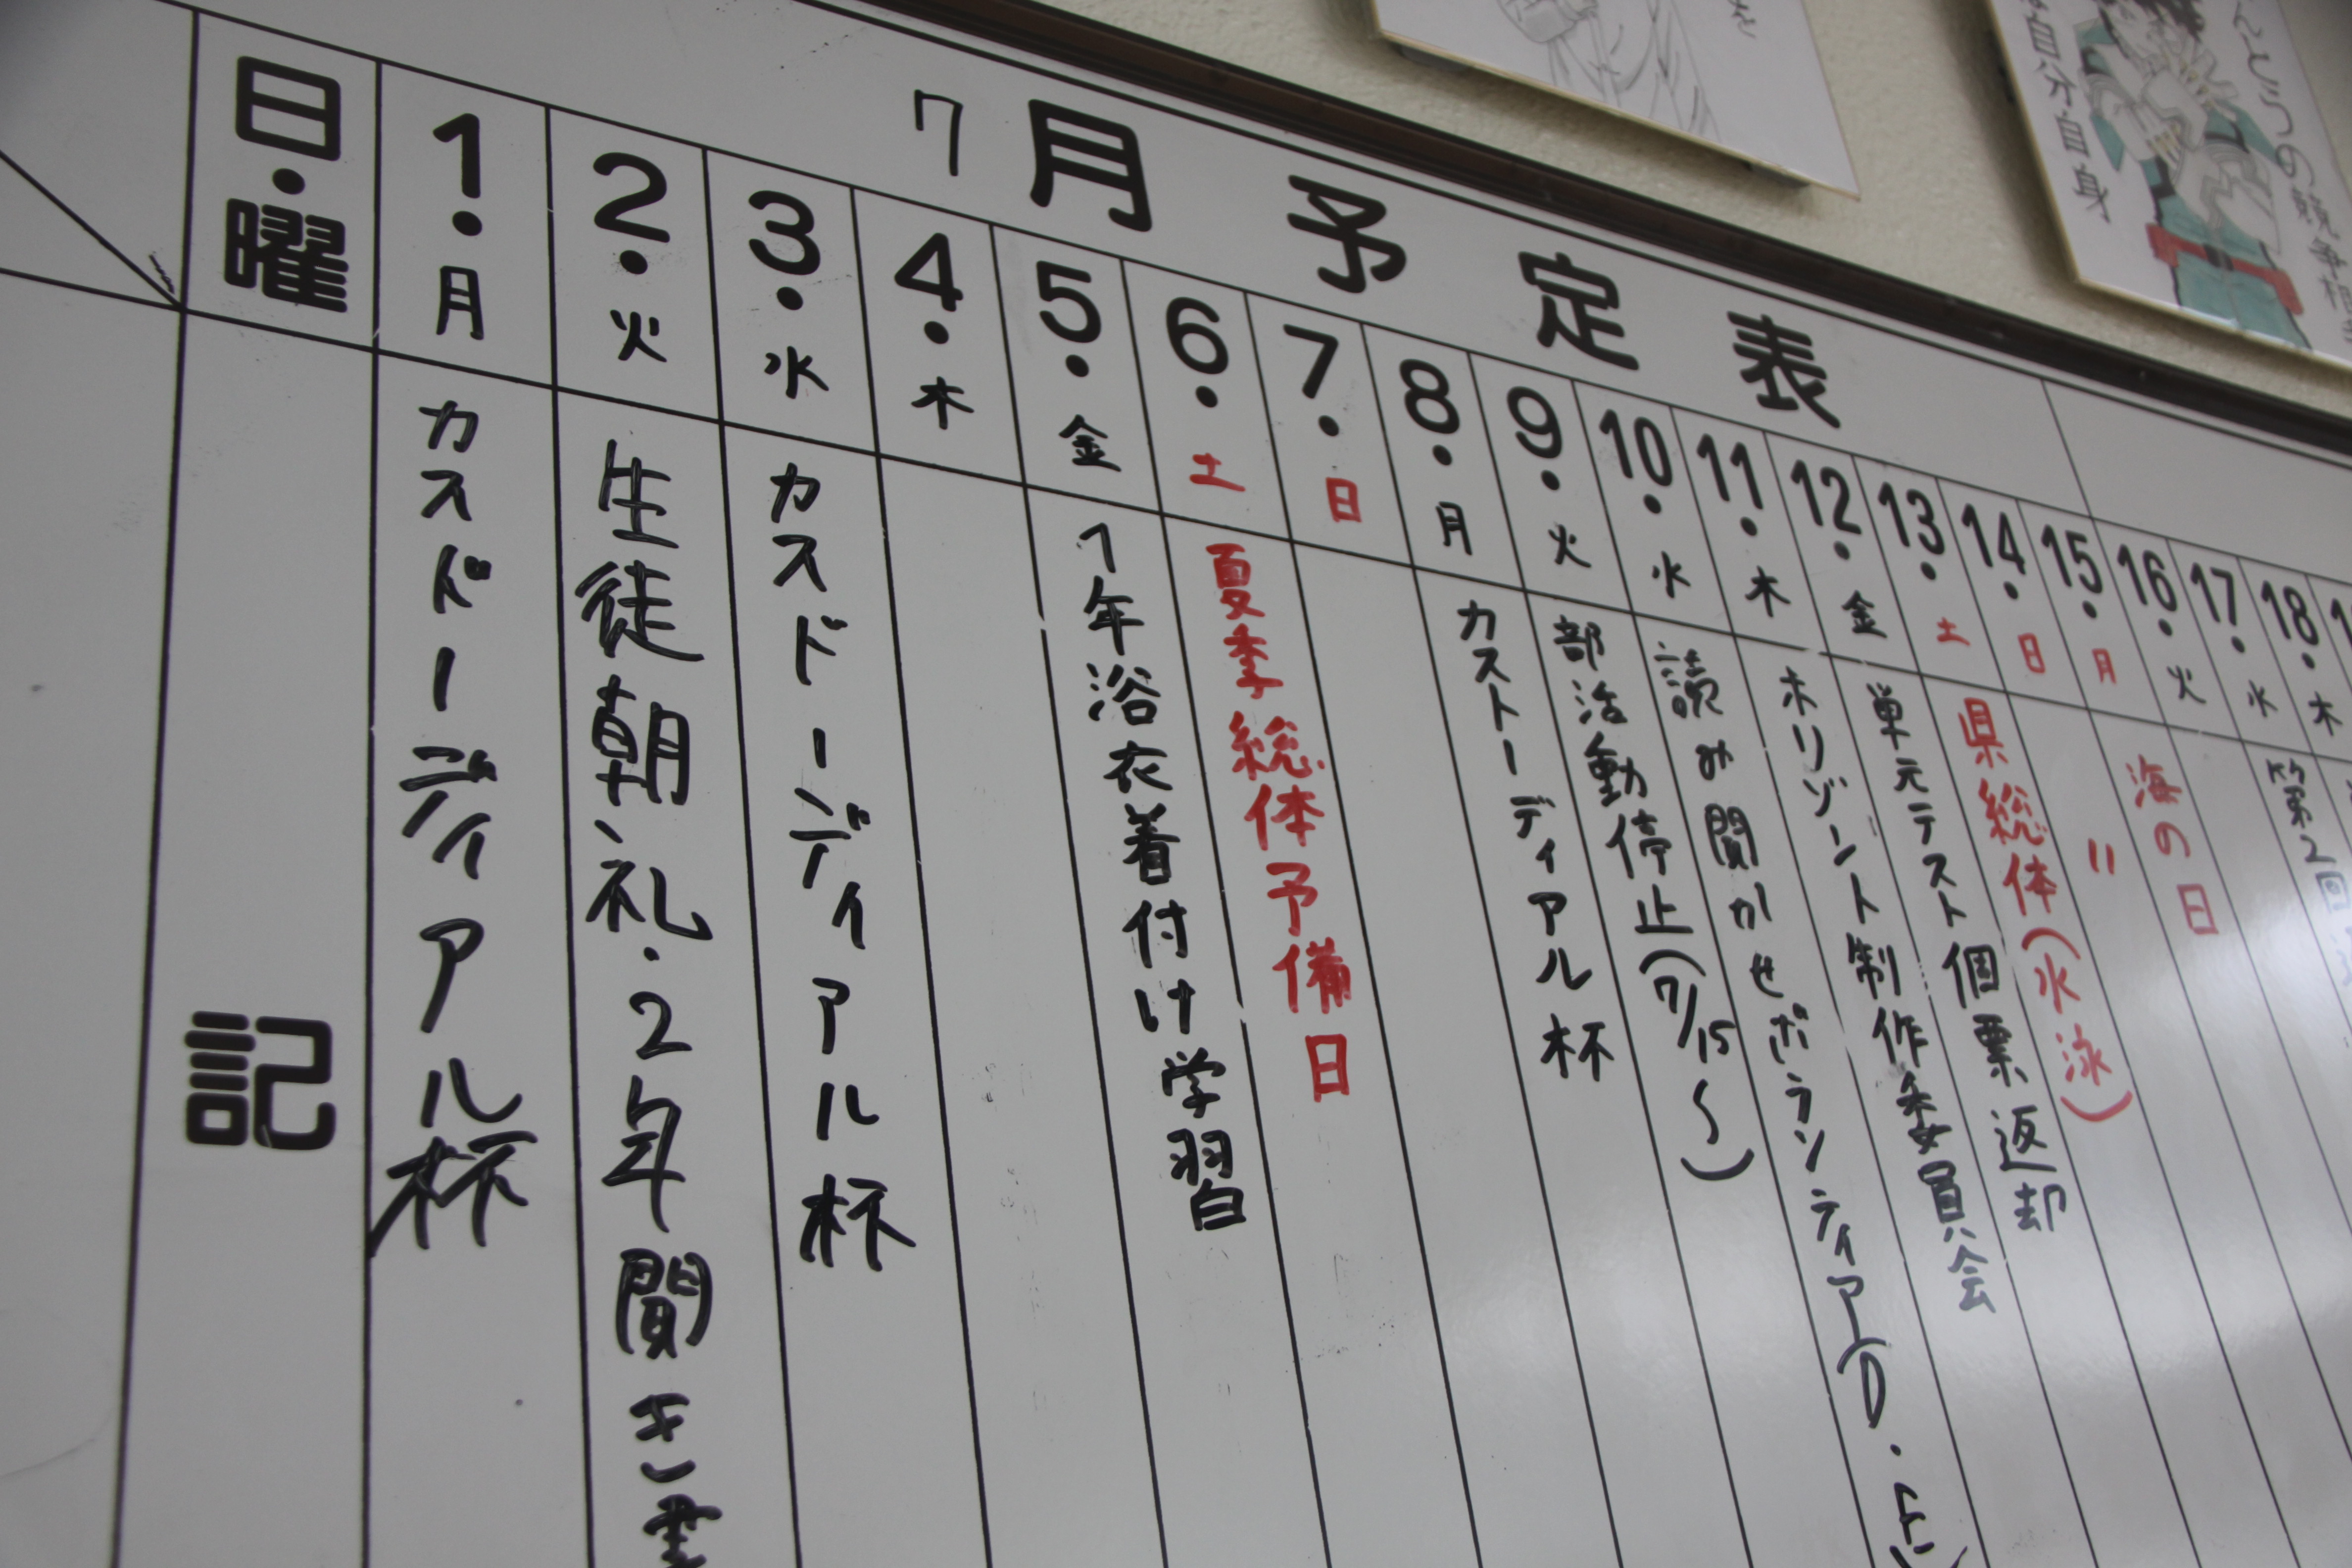 7月予定表
日・曜
記
1・月
カスドーディアル杯
2・火
生徒朝礼・2年聞き書
3・水
カスドーディアル杯
4・木
5・金
1年浴衣着付け学習
6・土
夏季総体予備日
7・日
8・月
カストーディアル杯
9・火
部活動停止(7/15〜)
10・水
読み聞かせボランティア(D・E)
11・木
ホリゾント制作委員会
12・金
単元テスト個票返却
13・土
県総体(水泳)
14・日
〃
15・月
海の日
16・火
17・水
第2回
18・木
自分自身